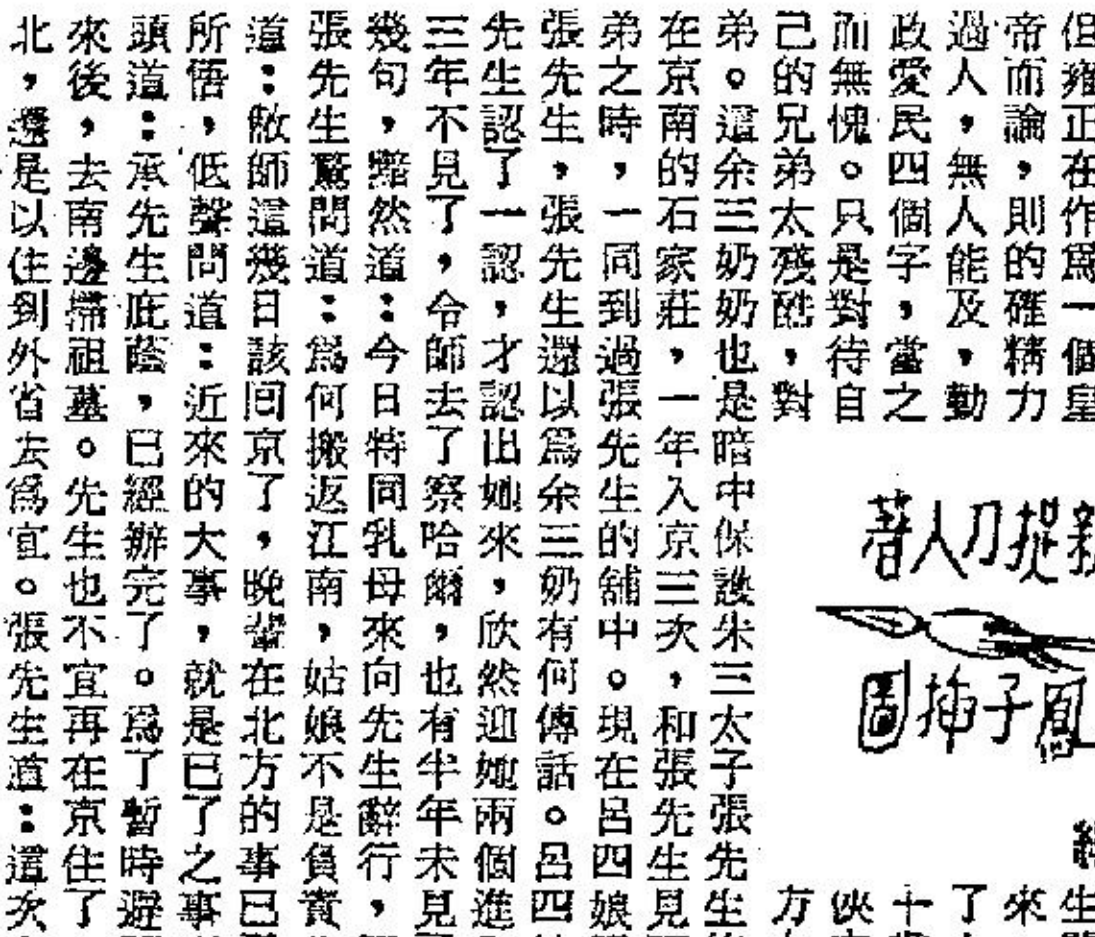 但雍正在作爲一個皇
帝而論，則的確精力
過人，無人能及，勤
政愛民四個字，當之
而無愧。只是對待自
己的兄弟太殘酷，對
著人刀捉
圖插子鳳
生
來
了
十
俠
方
弟。這余三奶奶也是暗中保護朱三太子張先生
在京南的石家莊，一年入京三次，和張先生見
弟之時，一同到過張先生的舖中。現在呂四娘
張先生，張先生還以爲余三奶有何傳話。呂四
先生認了一認，才認出她來，欣然迎她兩個進
三年不見了，令師去了察哈爾，也有半年未見
幾句，黯然道：今日特同乳母來向先生辭行，
張先生驚問道：爲何搬返江南，姑娘不是負責
道：敝師這幾日該囘京了，晚輩在北方的事已
所悟，低聲問道：近來的大事，就是已了之事
頭道：承先生庇蔭，已經辦完了。爲了暫時避
來後，去南邊掃祖墓。先生也不宜再在京住了
北，還是以住到外省去爲宜。張先生道：這次